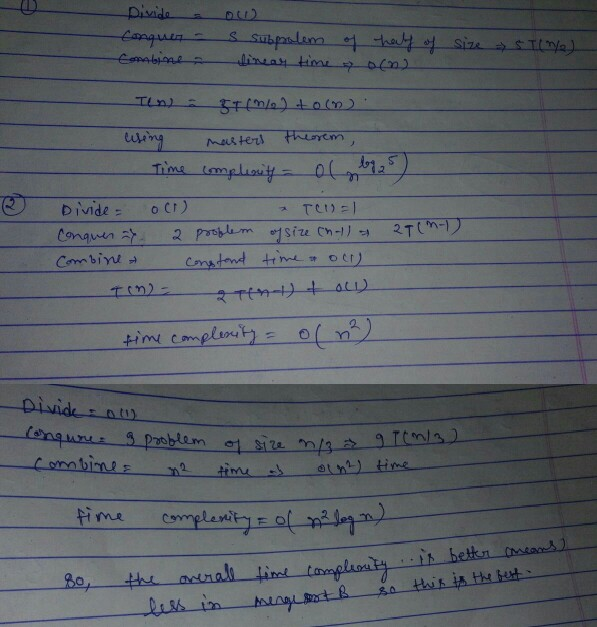 ① Divide = O(1)
Conquer = 5 subproblem of half of size ⇒ 5T(n/2)
Combine = linear time ⇒ O(n)
T(n) = 5T(n/2) + O(n)
Using masters theorem,
Time complexity = O(n^log₂5)
② Divide = O(1) T(1)=1
Conquer ⇒ 2 problem of size (n-1) ⇒ 2T(n-1)
Combine ⇒ constant time ⇒ O(1)
T(n) = 2T(n-1) + O(1)
time complexity = O(n²)
Divide = O(1)
Conqure = 9 problem of size n/3 ⇒ 9T(n/3)
Combine = n² time ⇒ O(n²) time
time complexity = O(n² log n)
so, the overall time complexity .. is better (means)
less in merge sort B so this is the best.